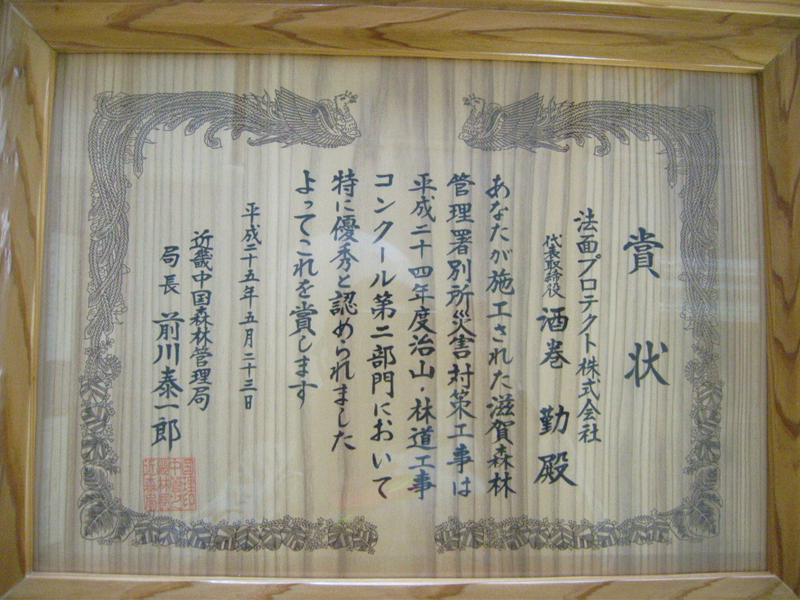 賞状
法面プロテクト株式会社
代表取締役 酒巻 勤 殿
あなたが施工された滋賀森林
管理署別所災害対策工事は
平成二十四年度治山・林道工事
コンクール第二部門において
特に優秀と認められました
よってこれを賞します
平成二十五年五月二十三日
近畿中国森林管理局
局長 前川泰一郎